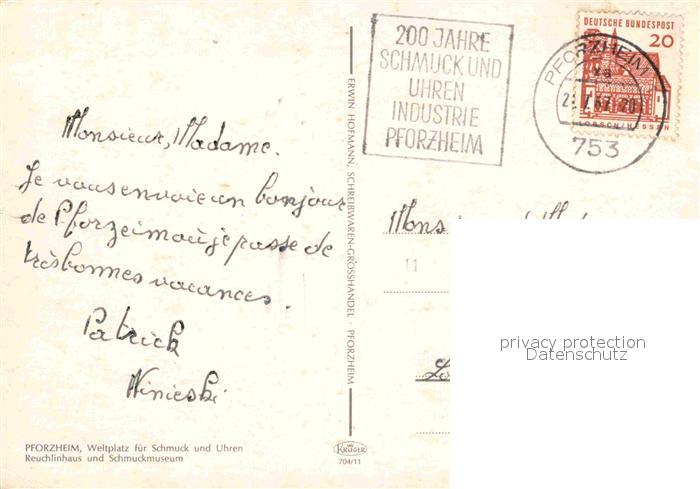 200 JAHRE
SCHMUCK UND
UHREN
INDUSTRIE
PFORZHEIM
DEUTSCHE BUNDESPOST
20
LORSCH/HESSEN
PFORZHEIM
753
Monsieur, Madame.
Je vous envoie un bonjour
de Pforzeim où je passe de
très bonnes vacances.
Patrick
Winieski
ERWIN HOFMANN, SCHREIBWAREN-GROSSHANDEL · PFORZHEIM
Mons
privacy protection
Datenschutz
PFORZHEIM, Weltplatz für Schmuck und Uhren
Reuchlinhaus und Schmuckmuseum
KRÜGER
704/11